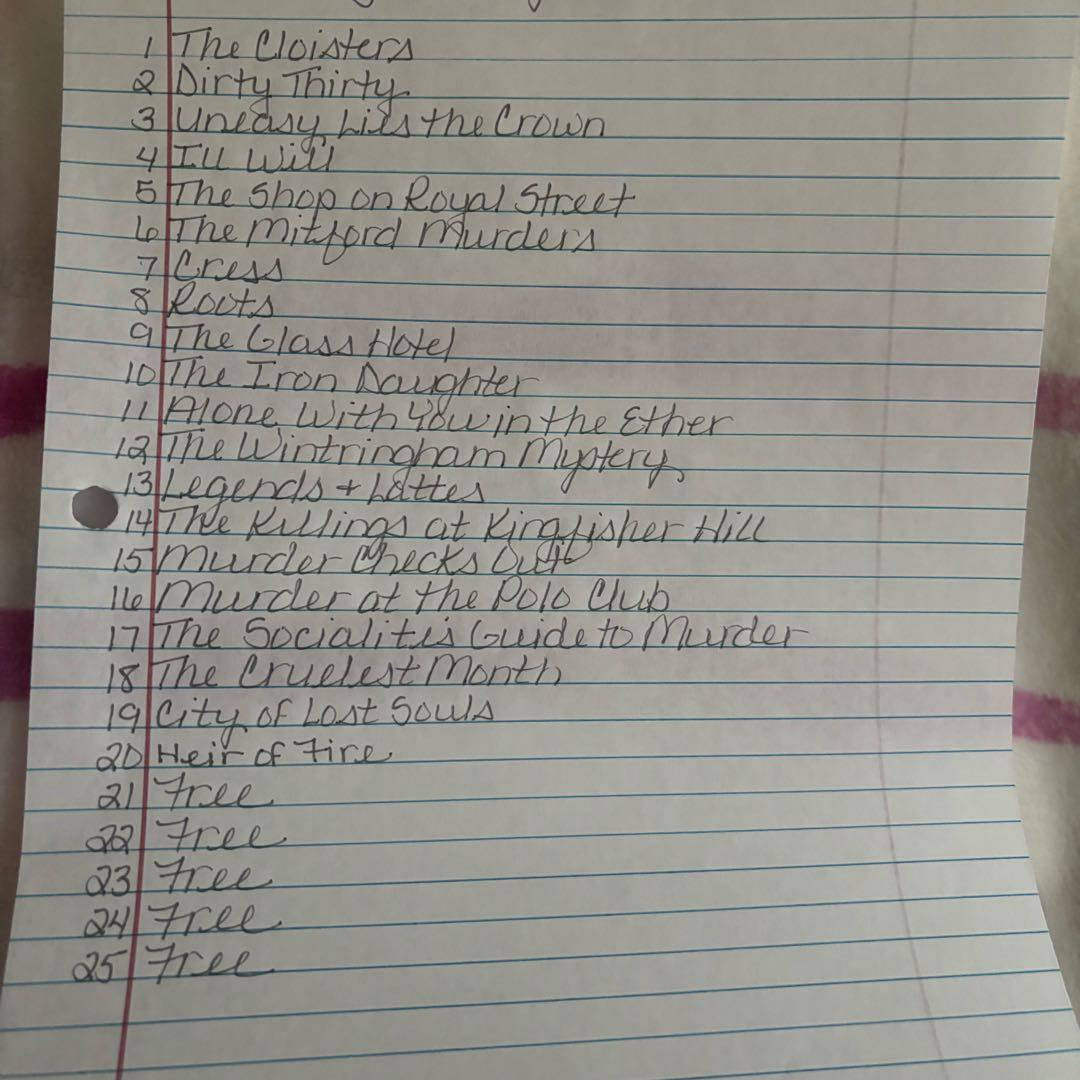 1 The Cloisters
2 Dirty Thirty
3 Uneasy Lies the Crown
4 Ill Will
5 The Shop on Royal Street
6 The Mitford Murders
7 Cress
8 Roots
9 The Glass Hotel
10 The Iron Daughter
11 Alone With You in the Ether
12 The Wintringham Mystery
13 Legends + Lattes
14 The Killings at Kingfisher Hill
15 Murder Checks Out
16 Murder at the Polo Club
17 The Socialite's Guide to Murder
18 The Cruelest Month
19 City of Lost Souls
20 Heir of Fire
21 Free
22 Free
23 Free
24 Free
25 Free